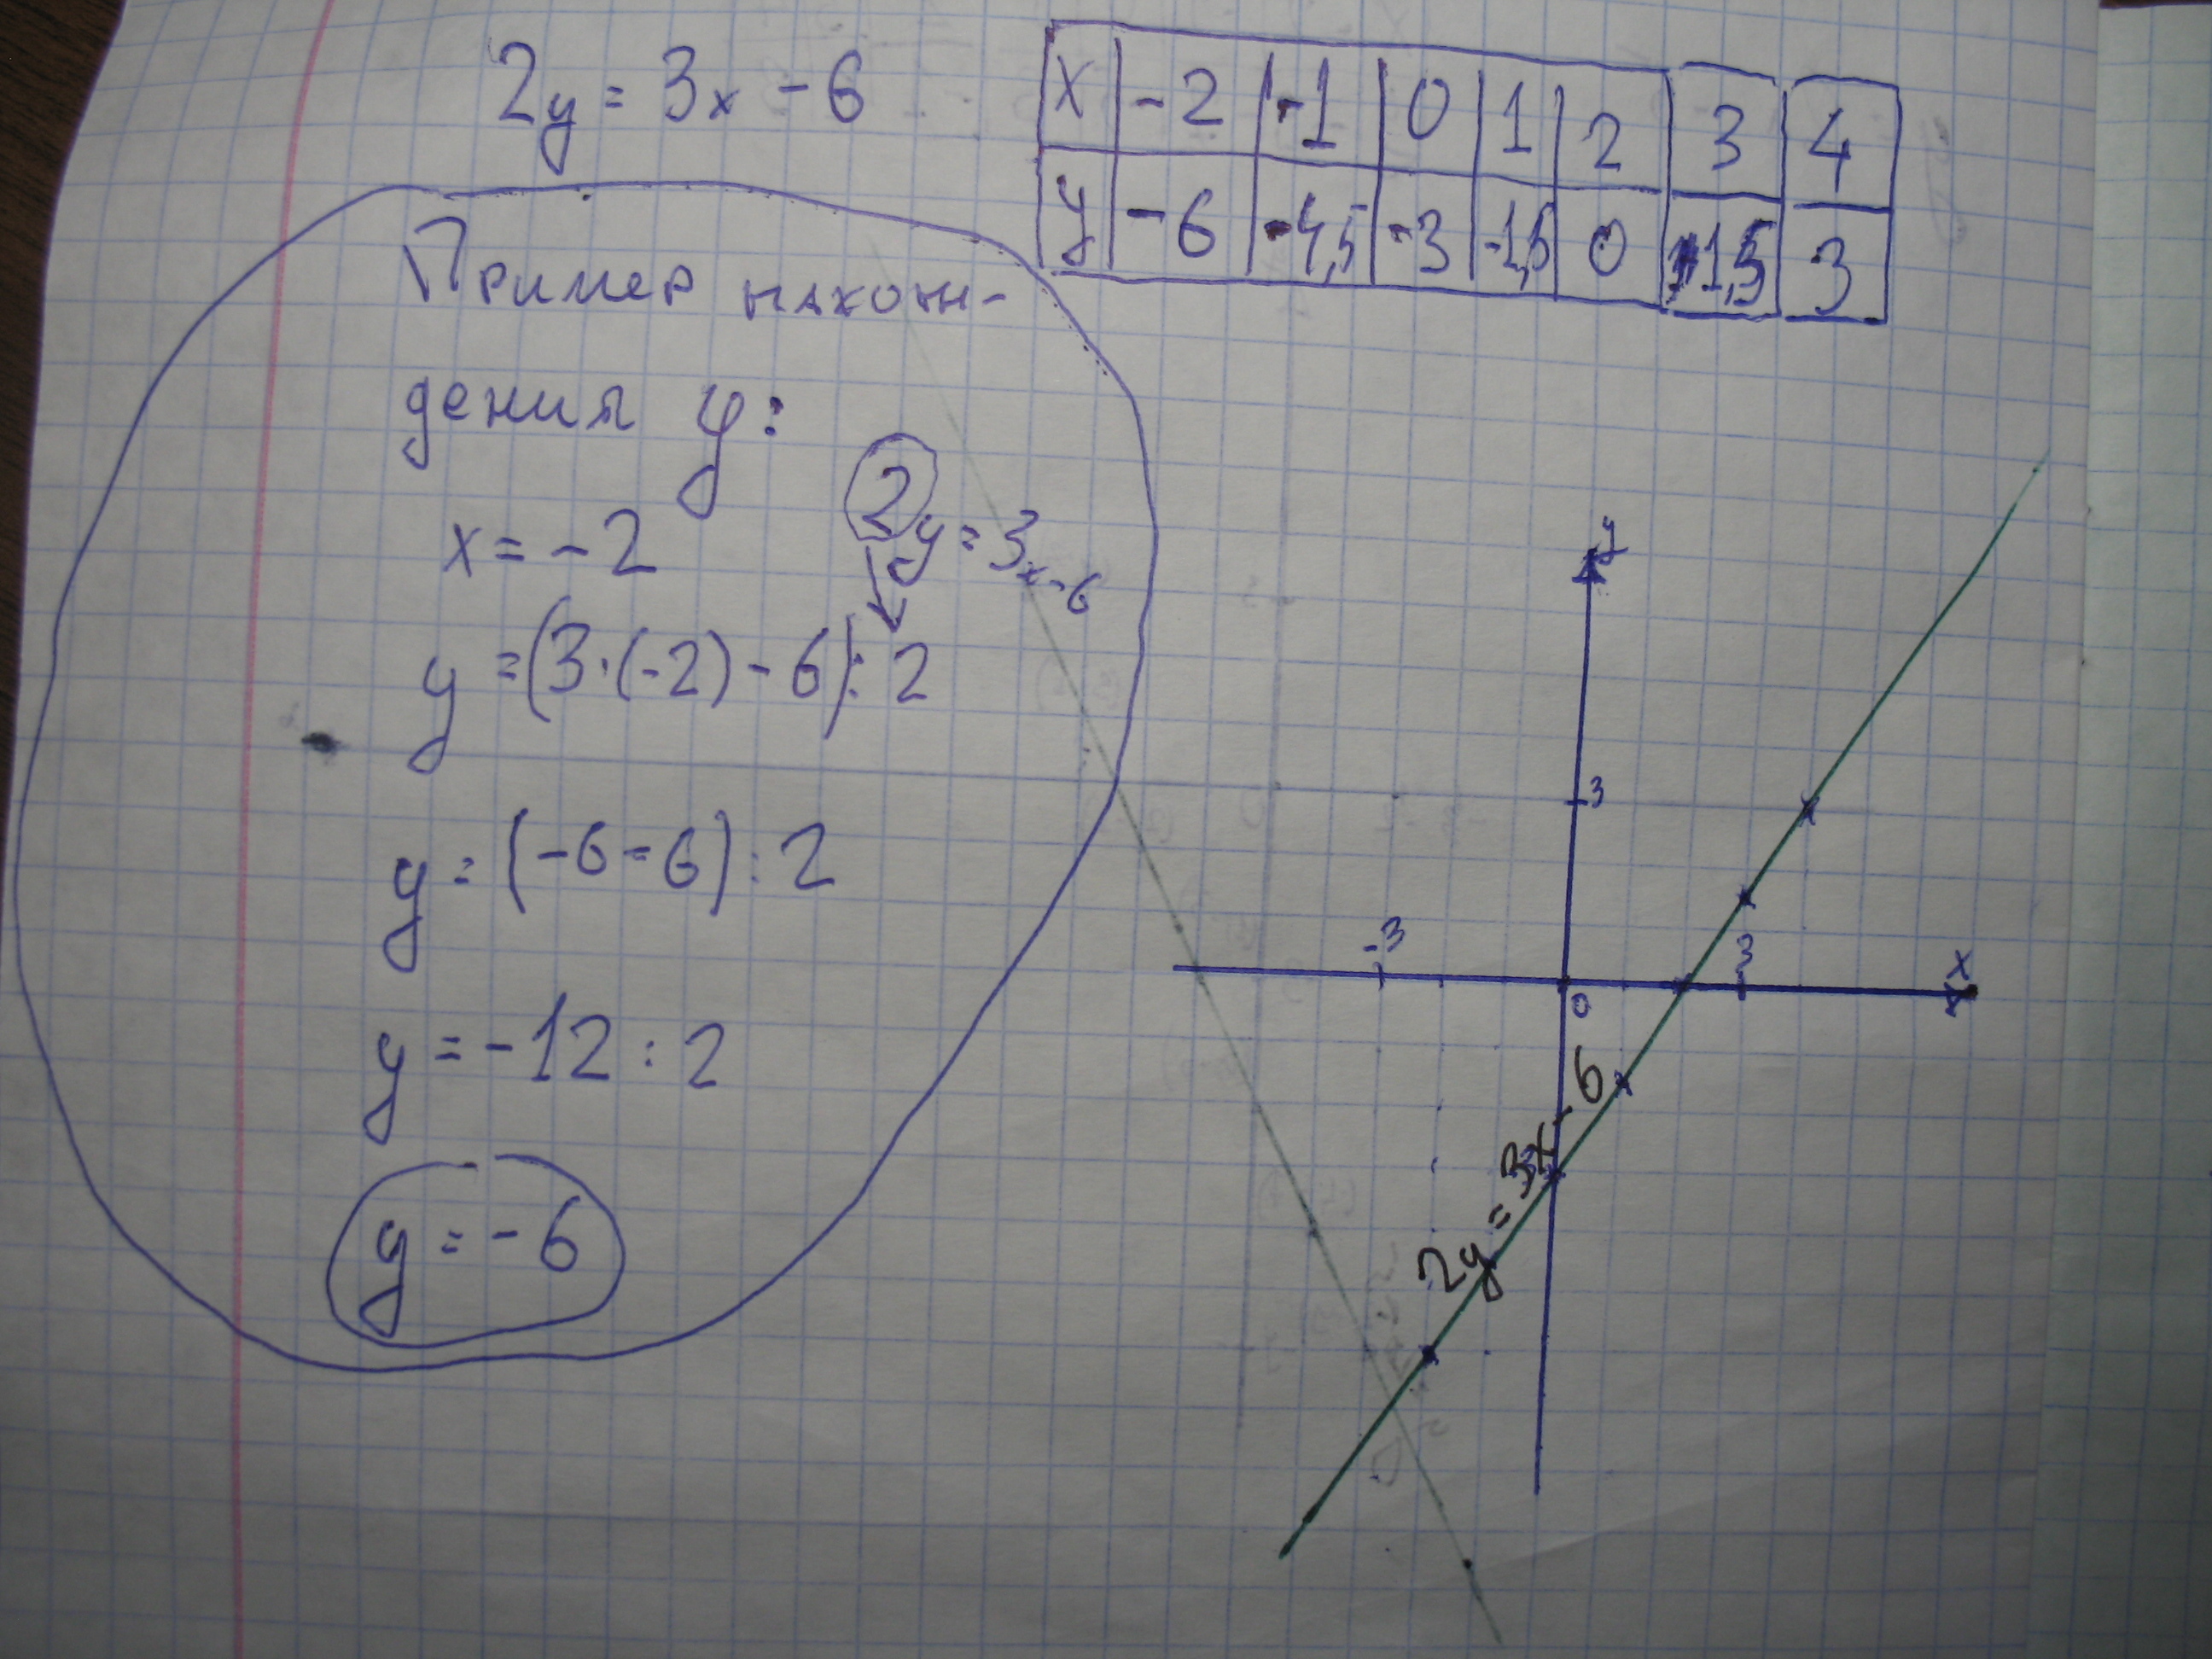 2y = 3x - 6
x -2 -1 0 1 2 3 4
y -6 -4,5 -3 -1,5 0 1,5 3
Пример нахож-
дения y:
x = -2
2y = 3x - 6
y = (3·(-2) - 6) : 2
y = (-6 - 6) : 2
y = -12 : 2
y = -6
y
3
-3
3
x
0
2y = 3x - 6